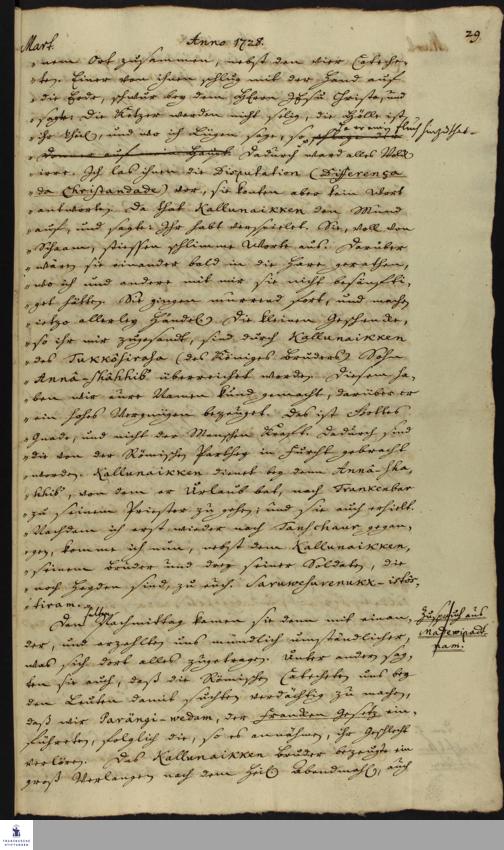 29
Mart. Anno 1728.
"nem Ort zusammen, nebst den vier Cateche-
"ten. Einer von ihnen schlug mit der Hand auf
"die Erde, schwur bey dem HErrn JEsu Christo, und
"sagte: Die Ketzer werden nicht selig, die Hölle ist
"ihr theil, und wo ich Lügen sage, so
"Donner auf mein Haupt. Dadurch ward alles Volk
"irre. Ich las ihnen die Disputation (Differença
"da Christandade) vor, sie konten aber kein Wort
"antworten. Da that Kallunaikken den Mund
"auf, und sagte: Ihr habt verspielet. Sie, voll von
"Schaam, stiessen schlimme Worte aus. Darüber
"wären sie einander bald in die Hare gerathen,
"wo ich und andere mit mir sie nicht besänfti-
"get hätten. Sie gingen murrend fort, und machen
"ietzo allerley Händel. Die kleinen Geschenke,
"so ihr mir zugesandt, sind durch Kallunaikken
"des Takkôhiraha (des Königes Bruders) Sohn
"Annâ-
überreichet worden. Diesem ha-
"ben wir eure Namen kund gemacht, darüber er
"ein hohes Vergnügen bezeuget. Das ist Gottes
"Gnade, und nicht der Menschen Kraft. Dadurch sind
"die von der Römischen Parthey in Furcht gebracht
"worden. Kallunaikken dienet bey dem Annâ-
von dem er Urlaub bat, nach Trankenbar
"zu seinem Priester zu gehen; und sie auch erhielt.
"Nachdem ich erst wieder nach Tanschaur gegan-
"gen, komme ich nun, nebst dem Kallunaikken,
"seinem Bruder und drey seiner Soldaten, die
"noch Heyden sind, zu euch. Saruwesurenukk-istôt-
"tiram.
Den selben Nachmittag kamen sie denn mit einan-
der, und erzählten uns mündlich umständlicher,
was sich dort alles zugetragen. Unter andern sag-
ten sie auch, daß die Römischen Catecheten uns bey
den Leuten damit suchten verdächtig zu machen,
daß wir Parangi-wedam, der Francken Gesetz ein-
führeten, folglich die, so es annähmen, ihr Geschlecht
verlören. Des Kallunaikken Bruder bezeugte ein
groß Verlangen nach dem Heil. Abendmahl, auch
Zuspruch aus